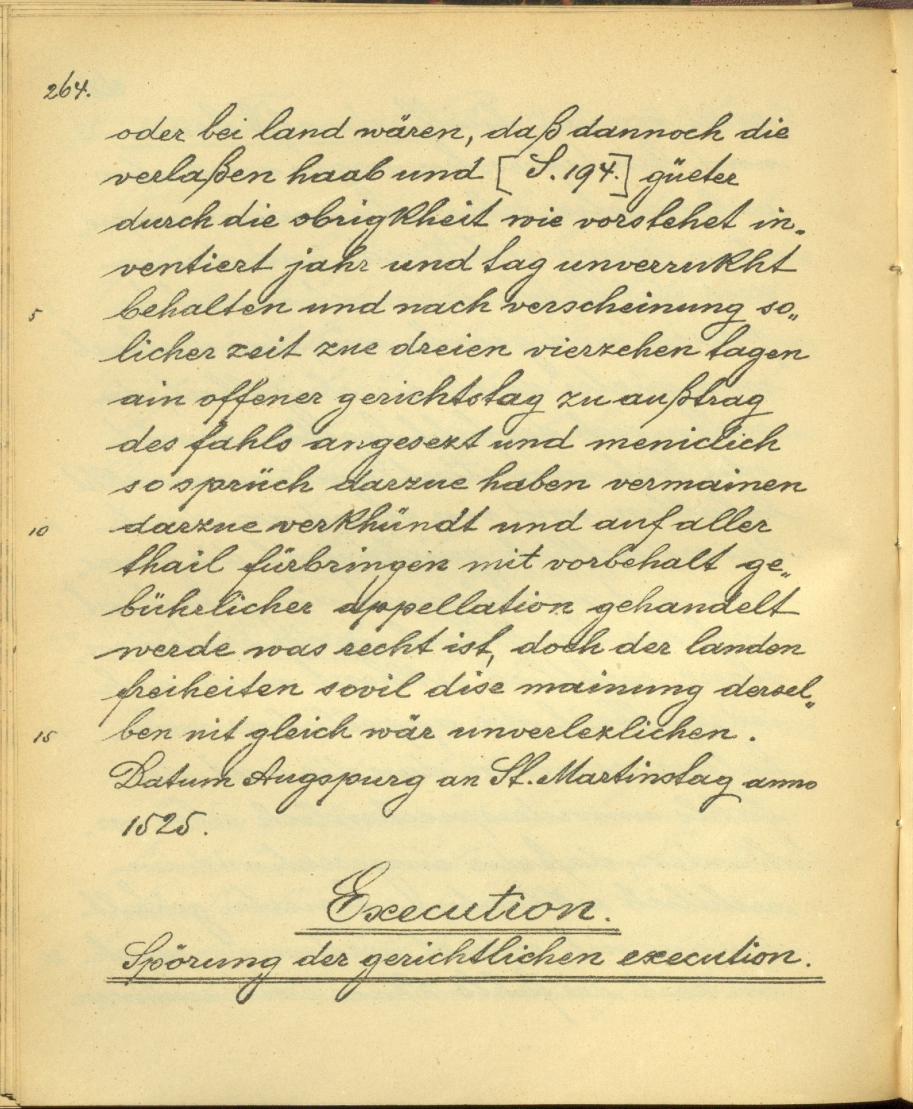 264.
oder bei land wären, daß dannoch die
verlaßen haab und [S. 194.] güeter
durch die obrigkheit wie vorstehet in„
ventiert jahr und tag unverrukht
5 behalten und nach verscheinung so„
licher zeit zue dreien vierzehen tagen
ain offener gerichtstag zu außtrag
des fahls angesezt und meniclich
so sprüch darzue haben vermainen
10 darzue verkhündt und auf aller
thail fürbringen mit vorbehalt ge„
bührlicher appellation gehandelt
werde was recht ist, doch der landen
freiheiten sovil dise mainung dersel„
15 ben nit gleich wär unverlezlichen.
Datum Augspurg an St. Martinstag anno
1525.
Execution.
Spörung der gerichtlichen execution.